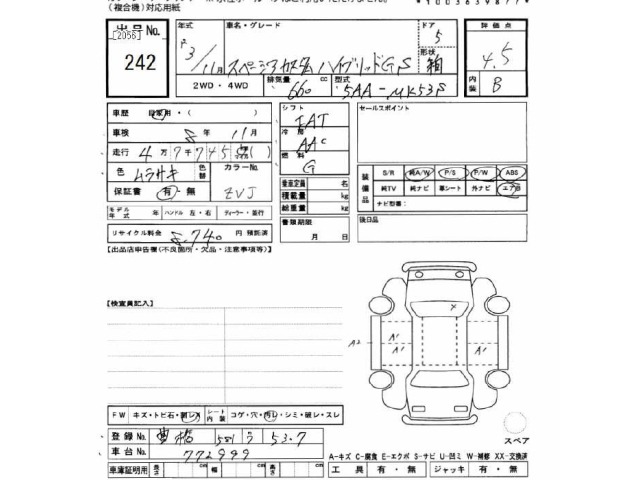 (複合機)対応用紙
出品No. 年式 車名・グレード ドア 評価点
[2055] 5
242 3/11月 スペーシアカスタムハイブリッドGS 形状 箱 4.5
2WD・4WD 排気量 660 cc 型式 5AA-MK53S 内装 B
車歴 自家用・( ) シフト FAT セールスポイント
車検 8年 11月 冷房 AAC
走行 4万7千745 燃料 G
色 ムラサキ 色替 カラーNo. 乗車定員 名 装備品 S/R 純A/W P/S P/W ABS
保証書 有・無 ZVJ 積載量 kg 純TV 純ナビ 革シート 外ナビ エアB
総重量 kg ナビ型番:
モデル年式 年 ハンドル 左・右 ディーラー・並行 書類期限 後日品
リサイクル料金 8,740 円 預託済 月 日
【出品店申告欄(不良箇所・欠品・注意事項等)】
【検査員記入】
A2 A1
A1
FW キズ・トビ石・割レ シート内装 コゲ・穴・汚レ・シミ・破レ・スレ
登録No. 豊橋 581 う 53-7 スペア
車台No. 772999 A-キズ C-腐食 E-エクボ S-サビ U-凹ミ W-補修 XX-交換済
車庫証明用 長さ cm 幅 cm 高さ cm 工具 有・無 ジャッキ 有・無